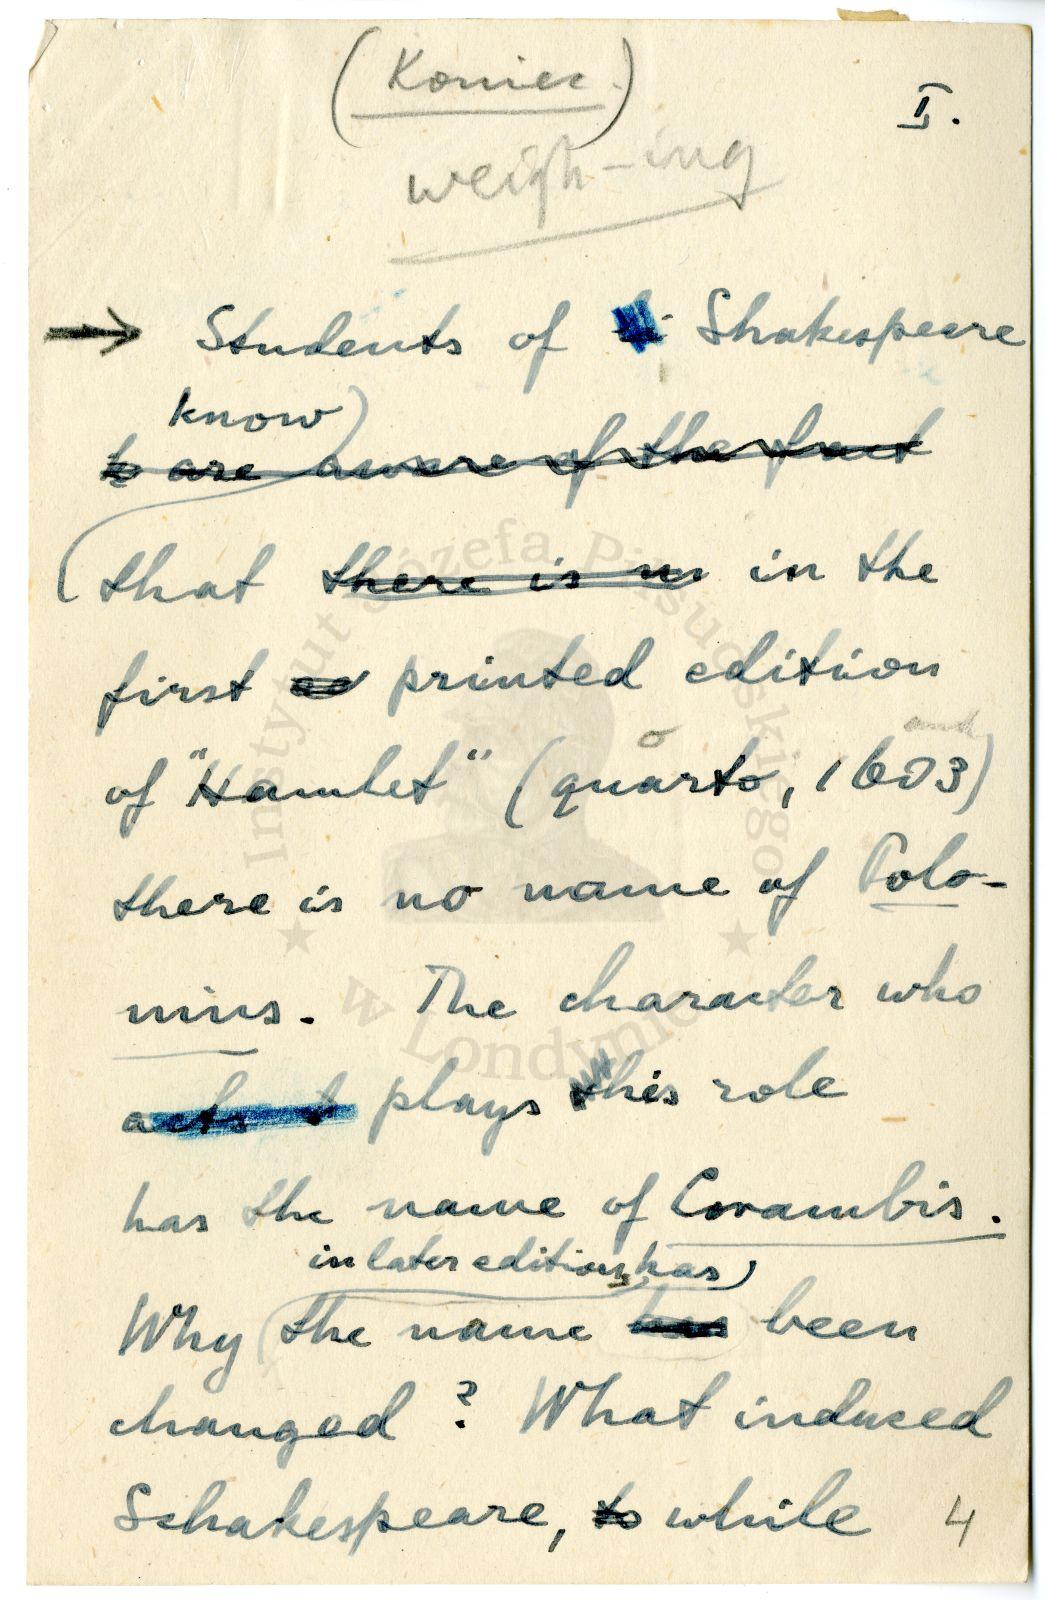 (Koniec.)
I.
weigh-ing
→ Students of Shakespeare
know
to are aware of the fact
that there is no in the
first printed edition
and
of "Hamlet" (quarto, 1603)
there is no name of Polo-
nius. The character who
acts t plays this role
has the name of Corambis.
in later editions has
Why the name has been
changed? What induced
Schakespeare, to while
4
Instytut Józefa Piłsudskiego
w Londynie